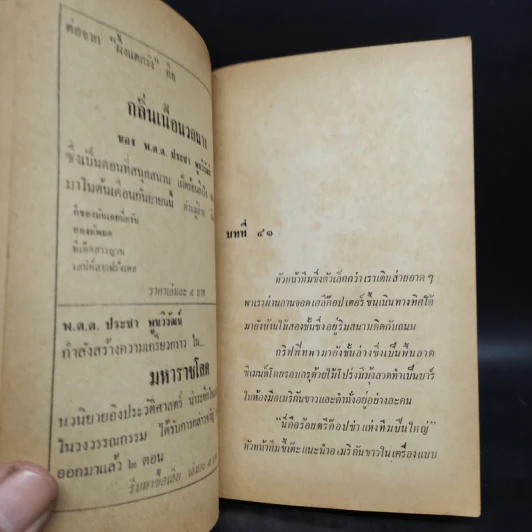 ต่อจาก "ผึ้งแตกรัง" คือ
กลิ่นเนื้อนวลนาง
ของ พ.ต.ต. ประชา พูนวิวัฒน์
ซึ่งเป็นตอนที่สนุกสนาน
มาในต้นเดือนกันยายนนี้
ราคาเล่มละ ๕ บาท
พ.ต.ต. ประชา พูนวิวัฒน์
กำลังสร้างความเกรียวกราว ใน...
มหาราชโสด
นวนิยายอิงประวัติศาสตร์
ในวงวรรณกรรม ได้รับการกล่าวขวัญ
ออกมาแล้ว ๒ ตอน
รีบหาซื้อเสีย
บทที่ ๔๑
หัวหน้าทีมซึ่งตัวเล็กกว่าเราเดินส่ายอาดๆ
พาเราผ่านลานจอดเฮลิคือปเตอร์ ขึ้นเนินทางทิศใต้
มายังบ้านไม้สองชั้นซึ่งอยู่ริมสนามติดกับถนน
กริฟที่ทพามายังชั้นล่างซึ่งเป็นพื้นลาด
ซิเมนต์โดยรอบกรุด้วยไม้โปร่งมีมุ้งลวดทำเป็นบาร์
ในห้องมีอเมริกันขาวและดำนั่งอยู่อย่างละคน
"นี่คือร้อยตรีค๊อปช้าแห่งทีมปืนใหญ่"
หัวหน้าทีมชี้เต๊ะแนะนำอเมริกันขาวในเครื่องแบบ